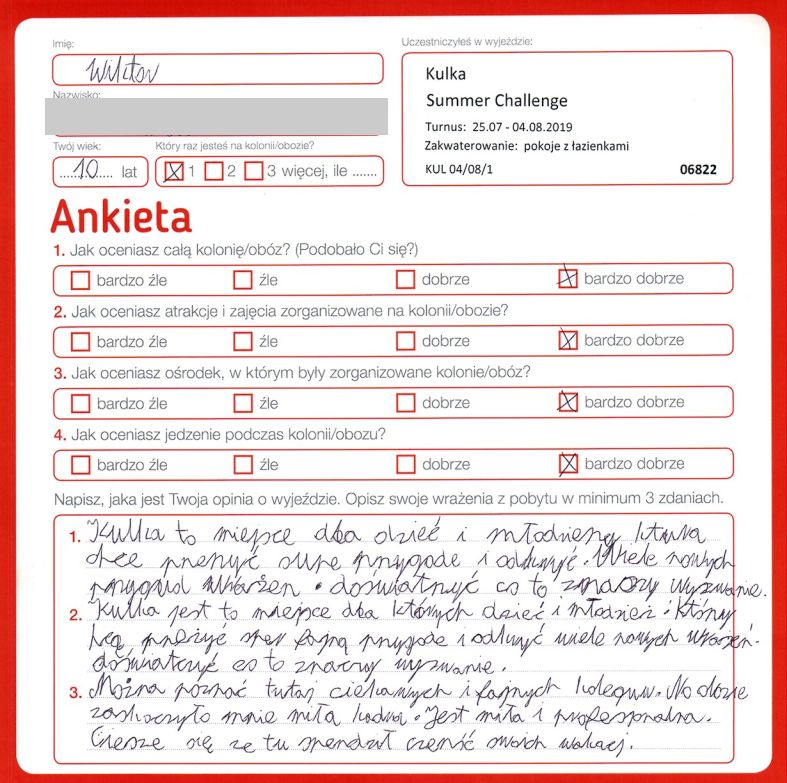 Imię:
Wiktor
Nazwisko:
Twój wiek:
10 lat
Który raz jesteś na kolonii/obozie?
1 2 3 więcej, ile .......
Uczestniczyłeś w wyjeździe:
Kulka
Summer Challenge
Turnus: 25.07 - 04.08.2019
Zakwaterowanie: pokoje z łazienkami
KUL 04/08/1 06822
Ankieta
1. Jak oceniasz całą kolonię/obóz? (Podobało Ci się?)
bardzo źle źle dobrze bardzo dobrze
2. Jak oceniasz atrakcje i zajęcia zorganizowane na kolonii/obozie?
bardzo źle źle dobrze bardzo dobrze
3. Jak oceniasz ośrodek, w którym były zorganizowane kolonie/obóz?
bardzo źle źle dobrze bardzo dobrze
4. Jak oceniasz jedzenie podczas kolonii/obozu?
bardzo źle źle dobrze bardzo dobrze
Napisz, jaka jest Twoja opinia o wyjeździe. Opisz swoje wrażenia z pobytu w minimum 3 zdaniach.
1. Kulka to miejsce dla dzieć i młodzieży która
chce przeżyć przygode i odkryć. Wiele nowych
przygud wrażen. doświatczyć co to znaczy wyzwanie.
2. Kulka jest to miejsce dla których dzieć i młodzież i którzy
przeżyć fajną przygode i odkryć wiele nowych wrażeń.
doświatczyć co to znaczy wyzwanie.
3. Można poznać tutaj ciekawych i fajnych koleguw. Na
zaskoczyło mnie miła kadra. Jest miła i profesjonalna.
Ciesze się że tu spendził cześć swoich wakacj.